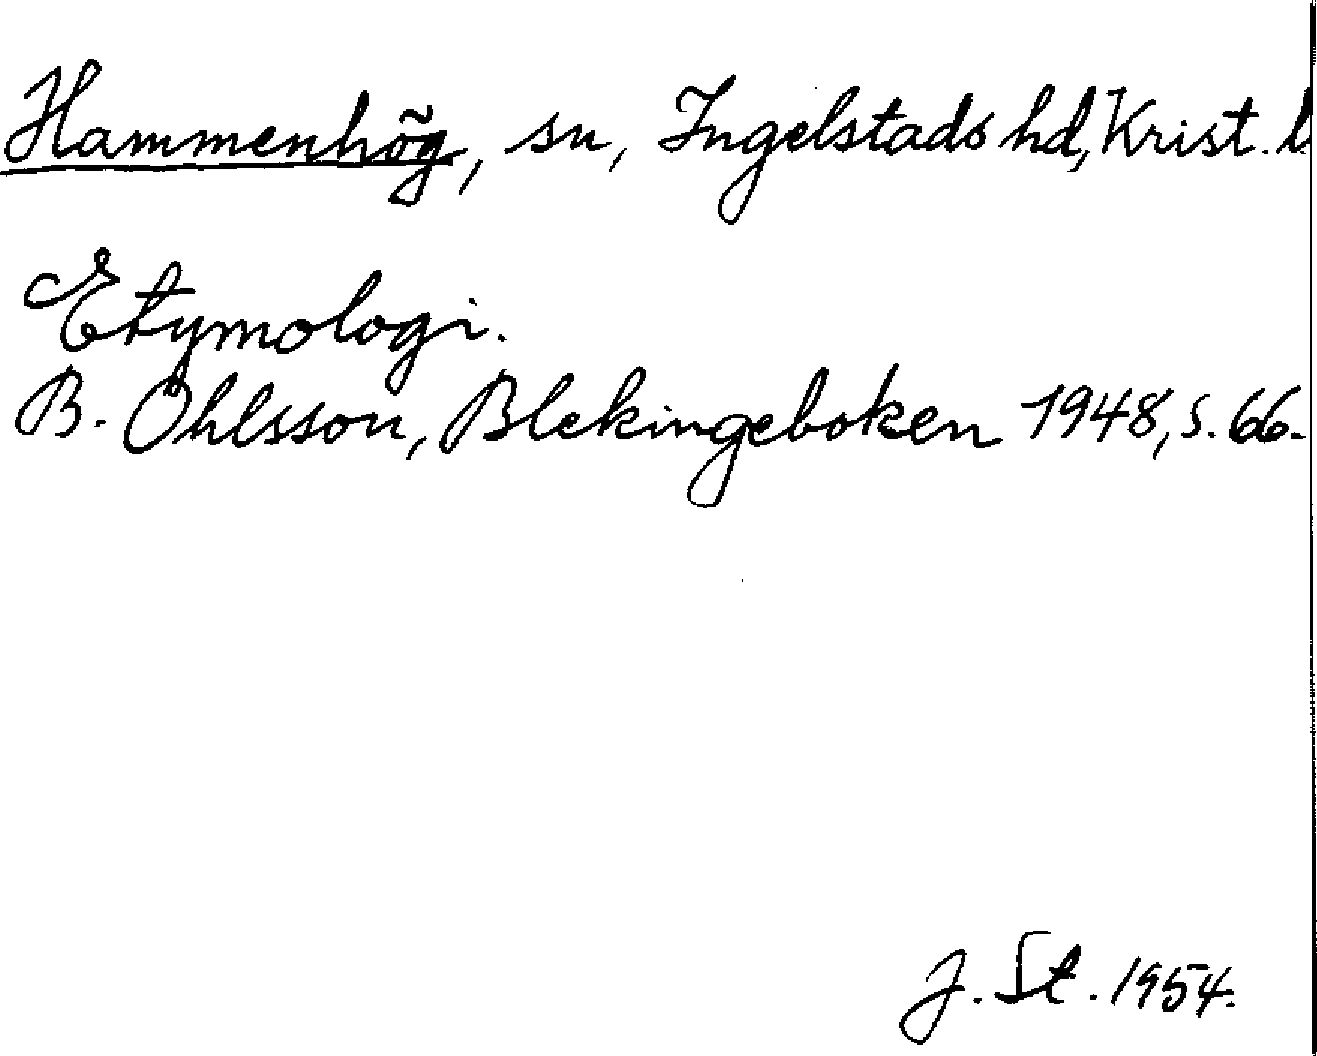 Hammenhög, sn, Ingelstads hd, Krist. l
Etymologi.
B. Ohlsson, Blekingeboken 1948, s. 66.
J. St. 1954.